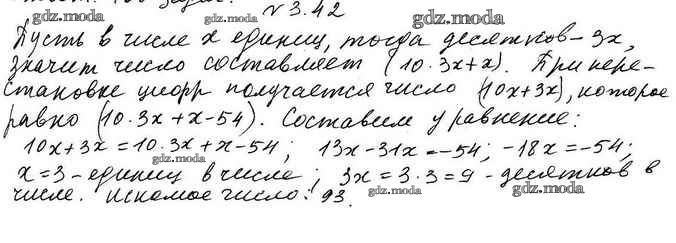 №3.42
Пусть в числе x единиц, тогда десятков – 3x,
значит число составляет (10·3x+x). При пере-
становке цифр получается число (10x+3x), которое
равно (10·3x+x-54). Составим уравнение:
10x+3x=10·3x+x-54; 13x-31x=-54; -18x=-54;
x=3 - единиц в числе; 3x=3·3=9 - десятков в
числе. Искомое число: 93.
gdz.moda
gdz.moda
gdz.moda
gdz.moda
gdz.moda
gdz.moda
gdz.moda
gdz.moda
gdz.moda